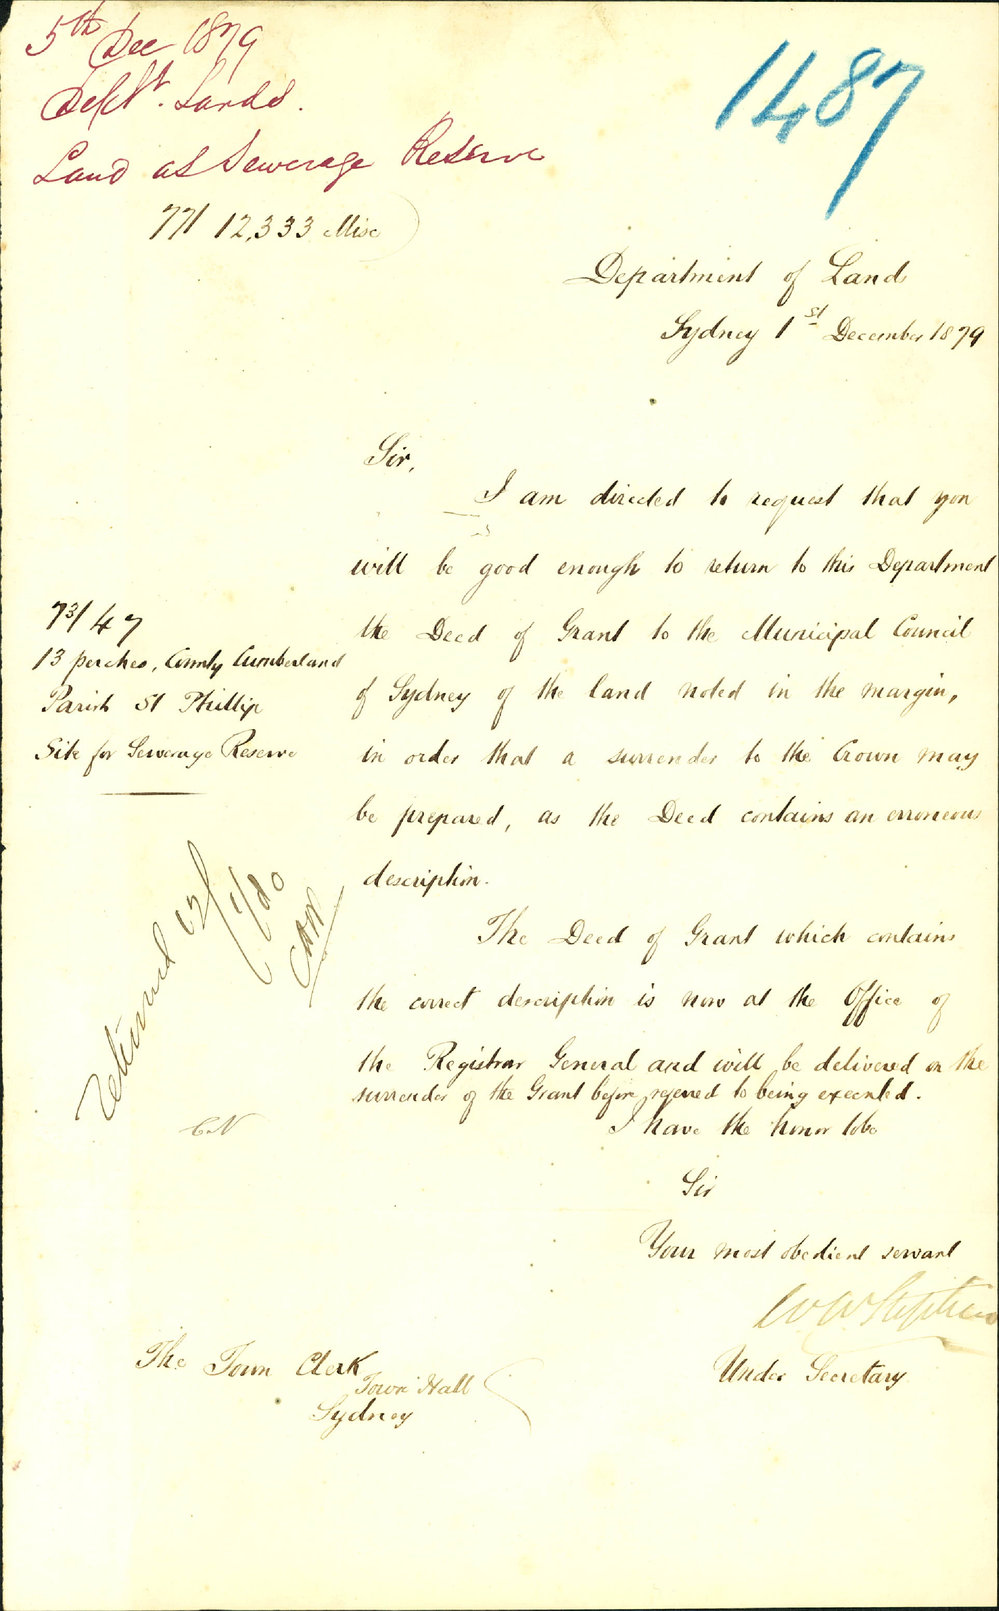 5th Dec 1879
Dept. Lands.
Land at Sewerage Reserve
77/12,333 Misc
1487
Department of Land
Sydney 1st December 1879
Sir,
I am directed to request that you
will be good enough to return to this Department
the Deed of Grant to the Municipal Council
of Sydney of the land noted in the margin,
in order that a surrender to the Crown may
be prepared, as the Deed contains an erroneous
description.
73/47
13 perches, County Cumberland
Parish St Phillip
Site for Sewerage Reserve
The Deed of Grant which contains
the correct description is now at the Office of
the Registrar General and will be delivered on the
surrender of the Grant before referred to being executed.
I have the honor to be
Sir
Your most obedient servant
W W Stephen
Under Secretary
Returned 12/1/80
The Town Clerk
Town Hall
Sydney